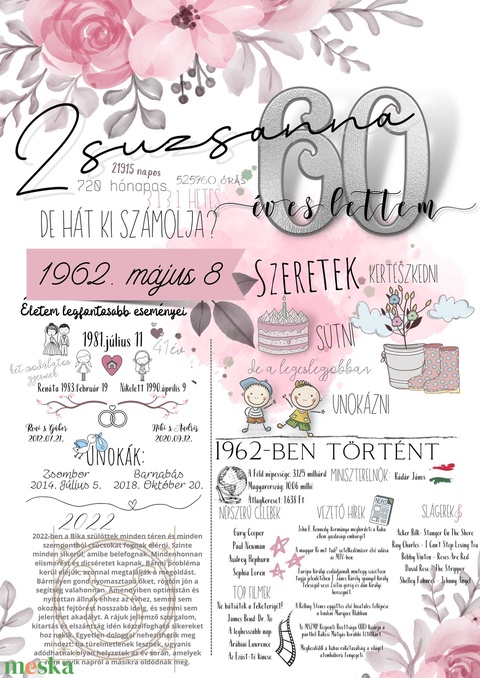 Zsuzsanna
60
21915 napos
720 hónapos
525960 órás
3131 HETES
éves lettem
DE HÁT KI SZÁMOLJA?
1962. május 8
Életem legfontosabb eseményei
1981.július 11
41 év
két csodálatos gyermek
Renáta 1983.február 19
Nikolett 1990.április 9
Reni & Gábor
2012.07.21.
Niki & András
2020.09.12.
UNOKÁK:
Zsombor
2014. Július 5.
Barnabás
2018. Október 20.
SZERETEK
KERTÉSZKEDNI
SÜTNI
de a legeslegjobban
UNOKÁZNI
1962-BEN TÖRTÉNT
A Föld népessége: 3,125 milliárd
Magyarország: 10,06 millió
Átlagkereset: 1.638 Ft
MINISZTERELNÖK:
Kádár János
NÉPSZERŰ CELEBEK
Gary Cooper
Paul Newman
Audrey Hepburn
Sophia Loren
TOP FILMEK
Ne bántsátok a feketerigót!
James Bond: Dr. No
A leghosszabb nap
Arábiai Lawrence
Az Ezüst-tó kincse
VEZETŐ HÍREK
John F. Kennedy kormánya meghirdeti a Kuba
elleni gazdasági embargót
A Rolling Stones együttes első hivatalos fellépése
a londoni Marquee Klubban
Megkezdődik a kubai rakétaválság a világot
atomháború fenyegeti.
SLÁGEREK
Acker Bilk - Stranger On The Shore
Ray Charles - I Can't Stop Loving You
Bobby Vinton - Roses Are Red
David Rose - The Stripper
Shelley Fabares - Johnny Angel
2022
2022-ben a Bika szülöttek minden téren és minden
szempontból csúcsokat fognak elérni. Szinte
minden sikerült, amibe belefognak. Mindenhonnan
elismerést és dicséretet kapnak. Bármi probléma
kerül eléjük, azonnal megtalálják a megoldást.
Bármilyen gond nyomasztaná őket, rögtön jön a
segítség valahonnan. Amennyiben optimisták és
nyitottan állnak ehhez az évhez, semmi sem
okozhat fejtörést hosszabb ideig, és semmi sem
jelenthet akadályt. A rájuk jellemző szorgalom,
kitartás és elszántság idén kézzelfogható sikereket
hoz nekik. Egyetlen dologgal nehezíthetik meg
mindezt: ha türelmetlenek lesznek, ugyanis
adódhatnak olyan helyzetek az év során, amelyek
nem egyik napról a másikra oldódnak meg.
meska